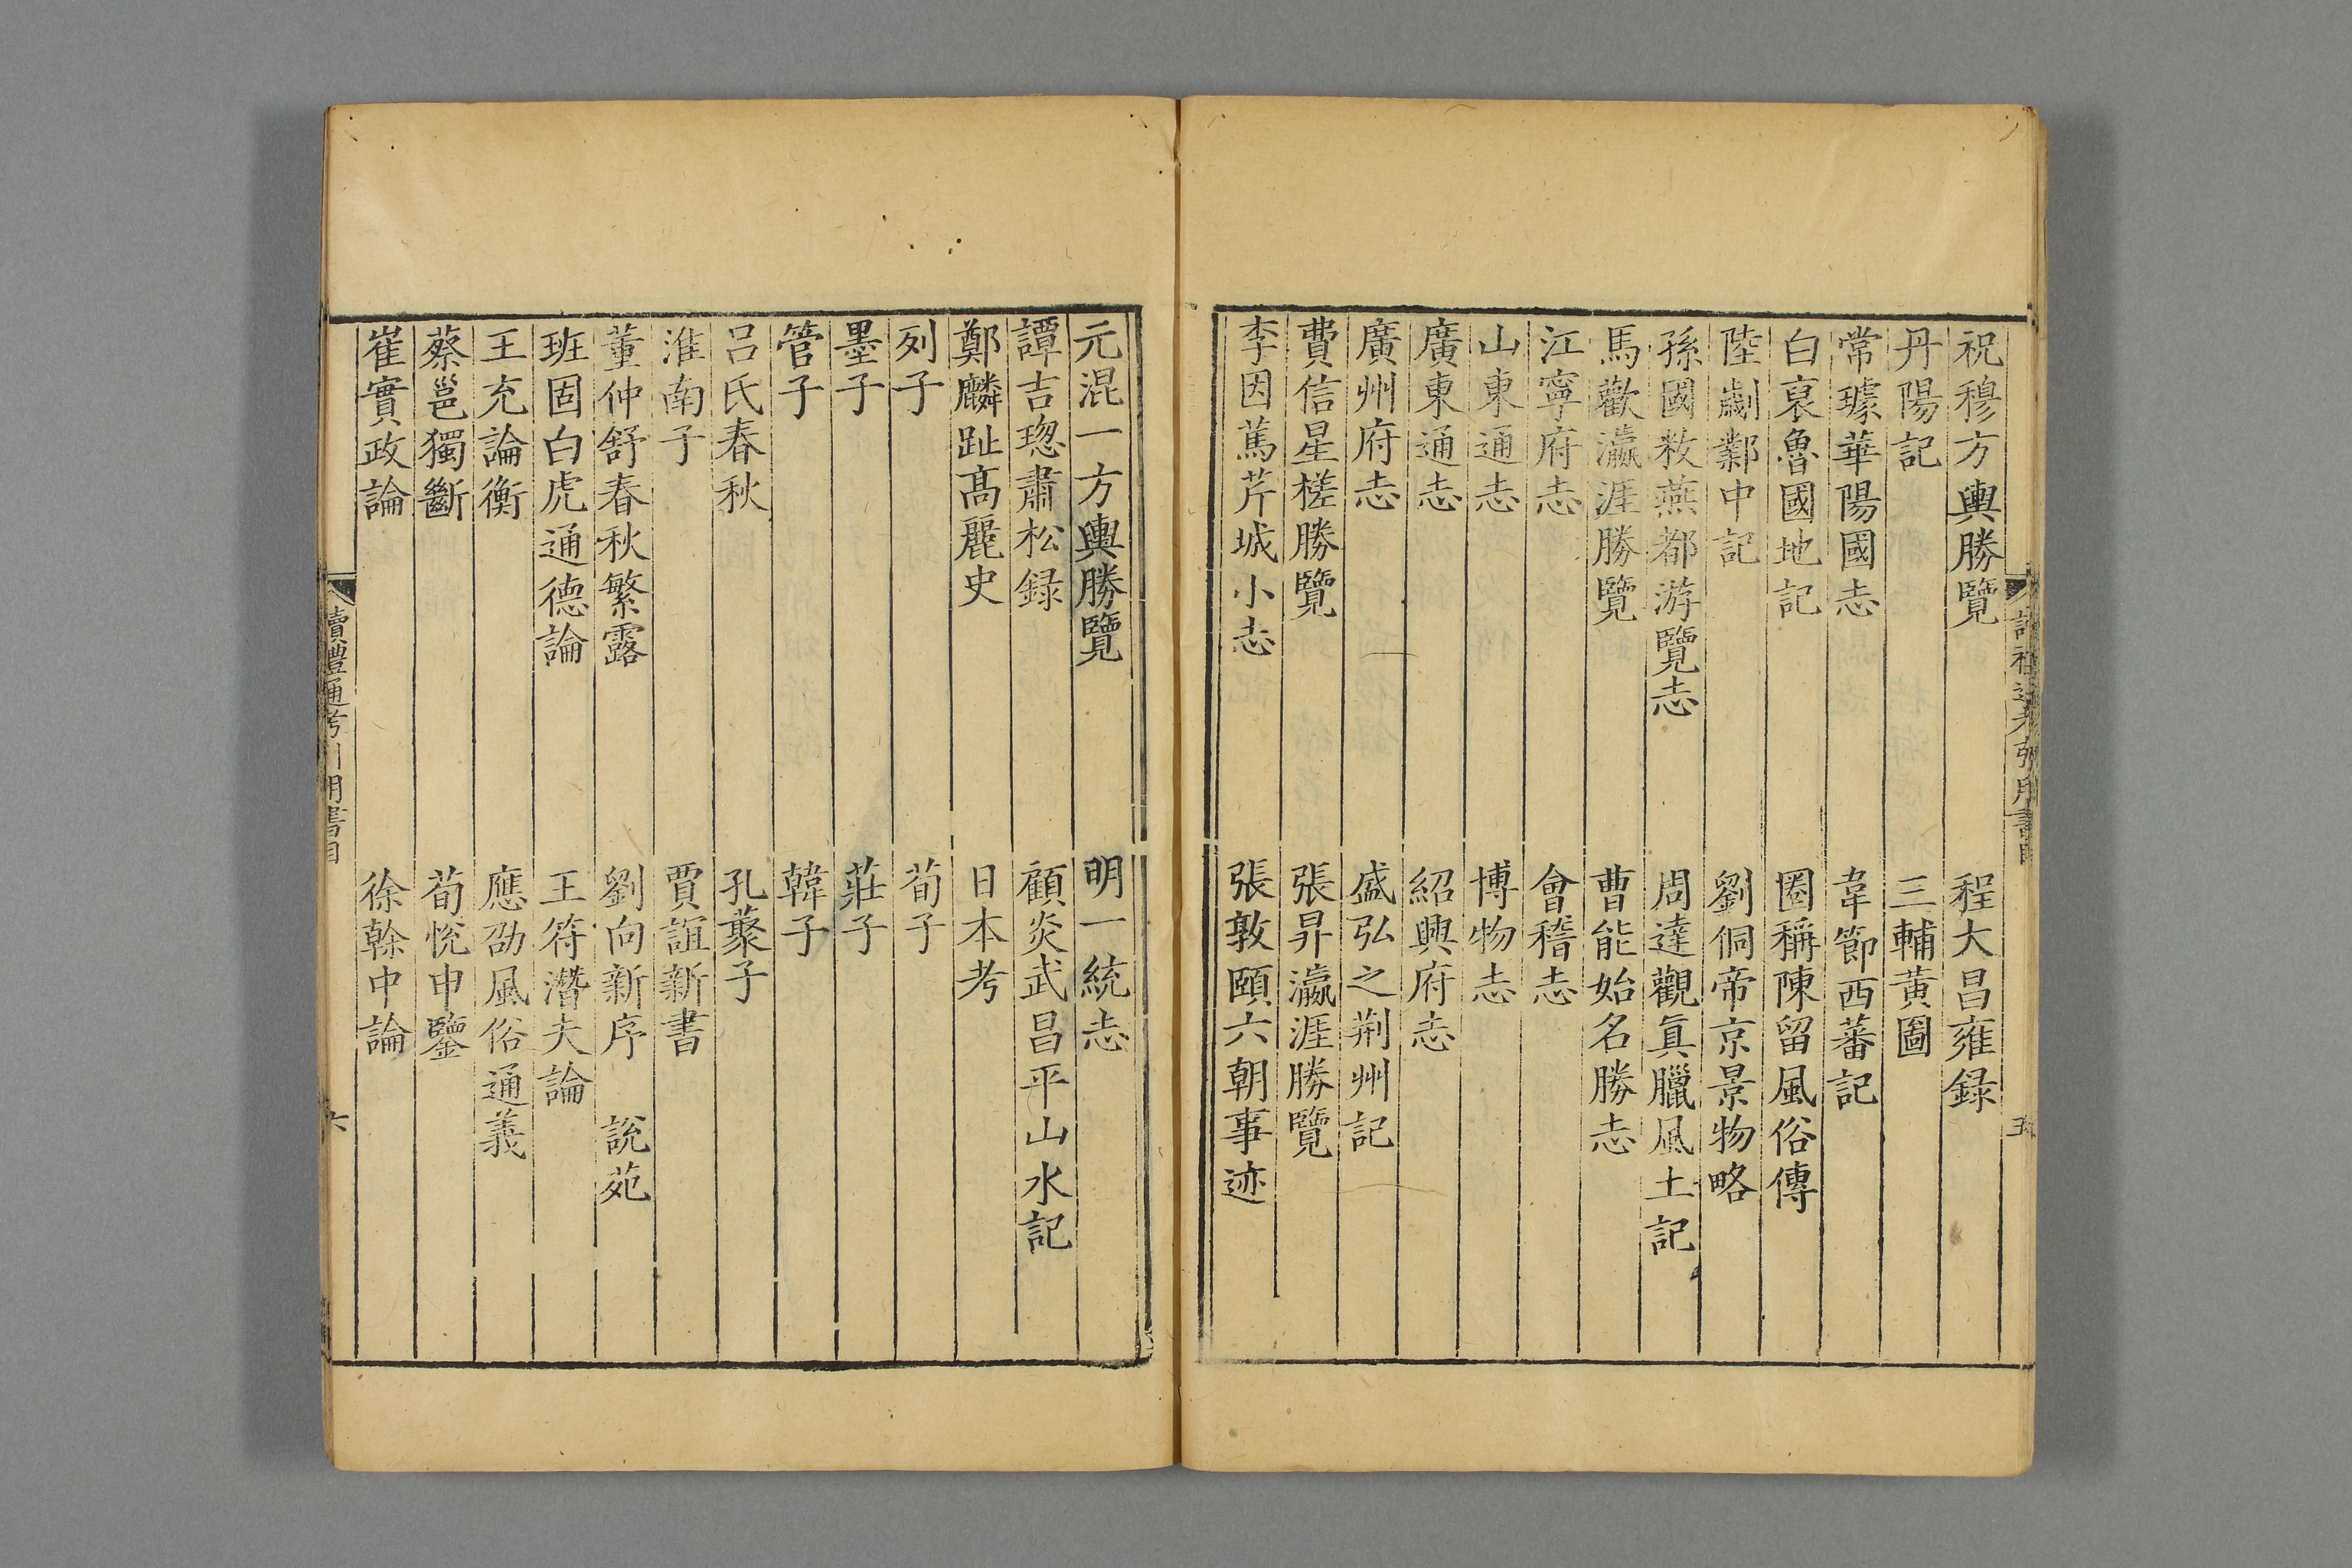 祝穆方輿勝覽　程大昌雍録
丹陽記　三輔黄圖
常璩華陽國志　韋節西蕃記
白裒魯國地記　圈稱陳留風俗傳
陸劌鄴中記　劉侗帝京景物略
孫國敉燕都游覽志　周達觀真臘風土記
馬歡瀛涯勝覽　曹能始名勝志
江寧府志　會稽志
山東通志　博物志
廣東通志　紹興府志
廣州府志　盛弘之荆州記
費信星槎勝覽　張昇瀛涯勝覽
李因篤芹城小志　張敦頤六朝事迹
五
元混一方輿勝覽　明一統志
譚吉璁肅松録　顧炎武昌平山水記
鄭麟趾高麗史　日本考
列子　荀子
墨子　莊子
管子　韓子
吕氏春秋　孔藂子
淮南子　賈誼新書
董仲舒春秋繁露　劉向新序　說苑
班固白虎通德論　王符潛夫論
王充論衡　應劭風俗通義
蔡邕獨斷　荀悅申鑒
崔實政論　徐幹中論
讀禮通考引用書目　六